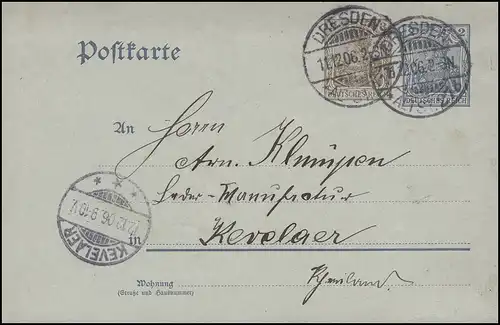 Postkarte
DRESDEN
11.12.06.
DEUTSCHES REICH
2
DRESDEN
DEUTSCHES REICH
An Herrn
Arn. Klümpen
Leder-Manufactur
in Kevelaer
Rheinland.
KEVELAER
12.12.06. 9-10.V.
Wohnung
(Straße und Hausnummer)